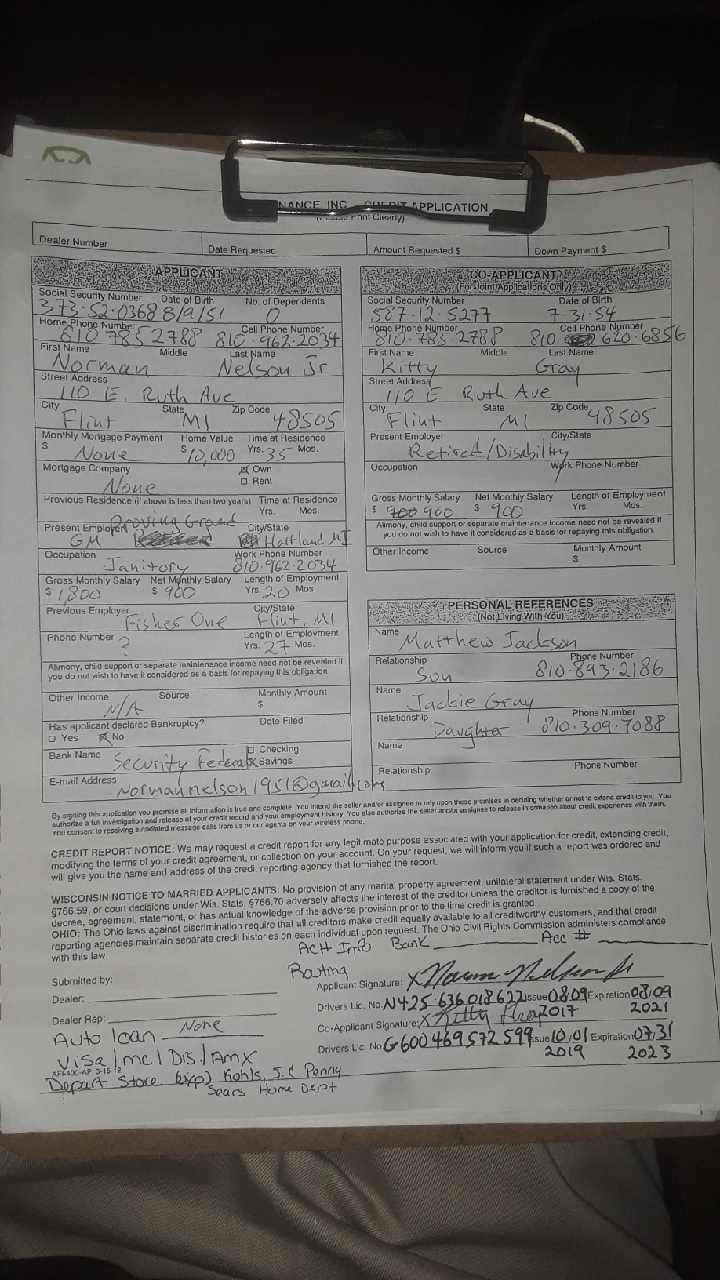 NANCE, INC. CREDIT APPLICATION
(Please Print Clearly)
Dealer Number Date Requested Amount Requested $ Down Payment $
APPLICANT
Social Security Number Date of Birth No. of Dependents
373-52-0368 8/9/51 0
Home Phone Number Cell Phone Number
810 785 2788 810-962-2034
First Name Middle Last Name
Norman Nelson Jr
Street Address
110 E. Ruth Ave
City State Zip Code
Flint MI 48505
Monthly Mortgage Payment Home Value Time at Residence
$ None $ 10,000 Yrs. 35 Mos.
Mortgage Company Own
None Rent
Previous Residence (if above is less than two years) Time at Residence
Yrs. Mos.
Present Employer Proving Ground City/State
GM Hartland MI
Occupation Work Phone Number
Janitory 810-962-2034
Gross Monthly Salary Net Monthly Salary Length of Employment
$ 1,800 $ 900 Yrs. 20 Mos
Previous Employer City/State
Fisher One Flint, MI
Phone Number Length of Employment
? Yrs. 27 Mos.
Alimony, child support or separate maintenance income need not be revealed if
you do not wish to have it considered as a basis for repaying this obligation.
Other Income Source Monthly Amount
N/A $
Has applicant declared Bankruptcy? Date Filed
Yes No
Bank Name Checking
Security Federal Savings
E-mail Address
Normannelson1951@gmail.com
CO-APPLICANT
(For Joint Applications Only)
Social Security Number Date of Birth
587-12-5277 7-31-54
Home Phone Number Cell Phone Number
810-785 2788 810 620-6856
First Name Middle Last Name
Kitty Gray
Street Address
110 E Ruth Ave
City State Zip Code
Flint MI 48505
Present Employer City/State
Retired/Disability
Occupation Work Phone Number
Gross Monthly Salary Net Monthly Salary Length of Employment
$ 900 $ 900 Yrs. Mos.
Alimony, child support or separate maintenance income need not be revealed if
you do not wish to have it considered as a basis for repaying this obligation.
Other Income Source Monthly Amount
$
PERSONAL REFERENCES
(Not Living With You)
Name
Matthew Jackson
Relationship Phone Number
Son 810-893-2186
Name
Jackie Gray
Relationship Phone Number
Daughter 810-309-7088
Name
Relationship Phone Number
By signing this application you promise all information is true and complete. You intend the seller and/or assignee to rely upon these promises in deciding whether or not to extend credit to you. You
authorize a full investigation and release of your credit record and your employment history. You also authorize the seller and/or assignee to release information about credit experience with them.
You consent to receiving autodialed message calls from us or our agents on your wireless phone.
CREDIT REPORT NOTICE: We may request a credit report for any legitimate purpose associated with your application for credit, extending credit,
modifying the terms of your credit agreement, or collection on your account. On your request, we will inform you if such a report was ordered and
will give you the name and address of the credit reporting agency that furnished the report.
WISCONSIN NOTICE TO MARRIED APPLICANTS: No provision of any marital property agreement, unilateral statement under Wis. Stats.
§766.59, or court decisions under Wis. Stats. §766.70 adversely affects the interest of the creditor unless the creditor is furnished a copy of the
decree, agreement, statement, or has actual knowledge of the adverse provision prior to the time credit is granted.
OHIO: The Ohio laws against discrimination require that all creditors make credit equally available to all creditworthy customers, and that credit
reporting agencies maintain separate credit histories on each individual upon request. The Ohio Civil Rights Commission administers compliance
with this law
ACH Info Bank Acc #
Routing
Submitted by:
Dealer:
Dealer Rep:
Auto loan None
Visa/mc/Dis/Amx
Depart Store Kohls, J.C Penny
Sears Home Dept
Applicant Signature: x Norman Nelson Jr
Drivers Lic. No. N425 636 018 622 Issue 08.09 2017 Expiration 08/09 2021
Co-Applicant Signature: x Kitty Gray
Drivers Lic. No. G600469572599 Issue 10/01 2019 Expiration 07/31 2023